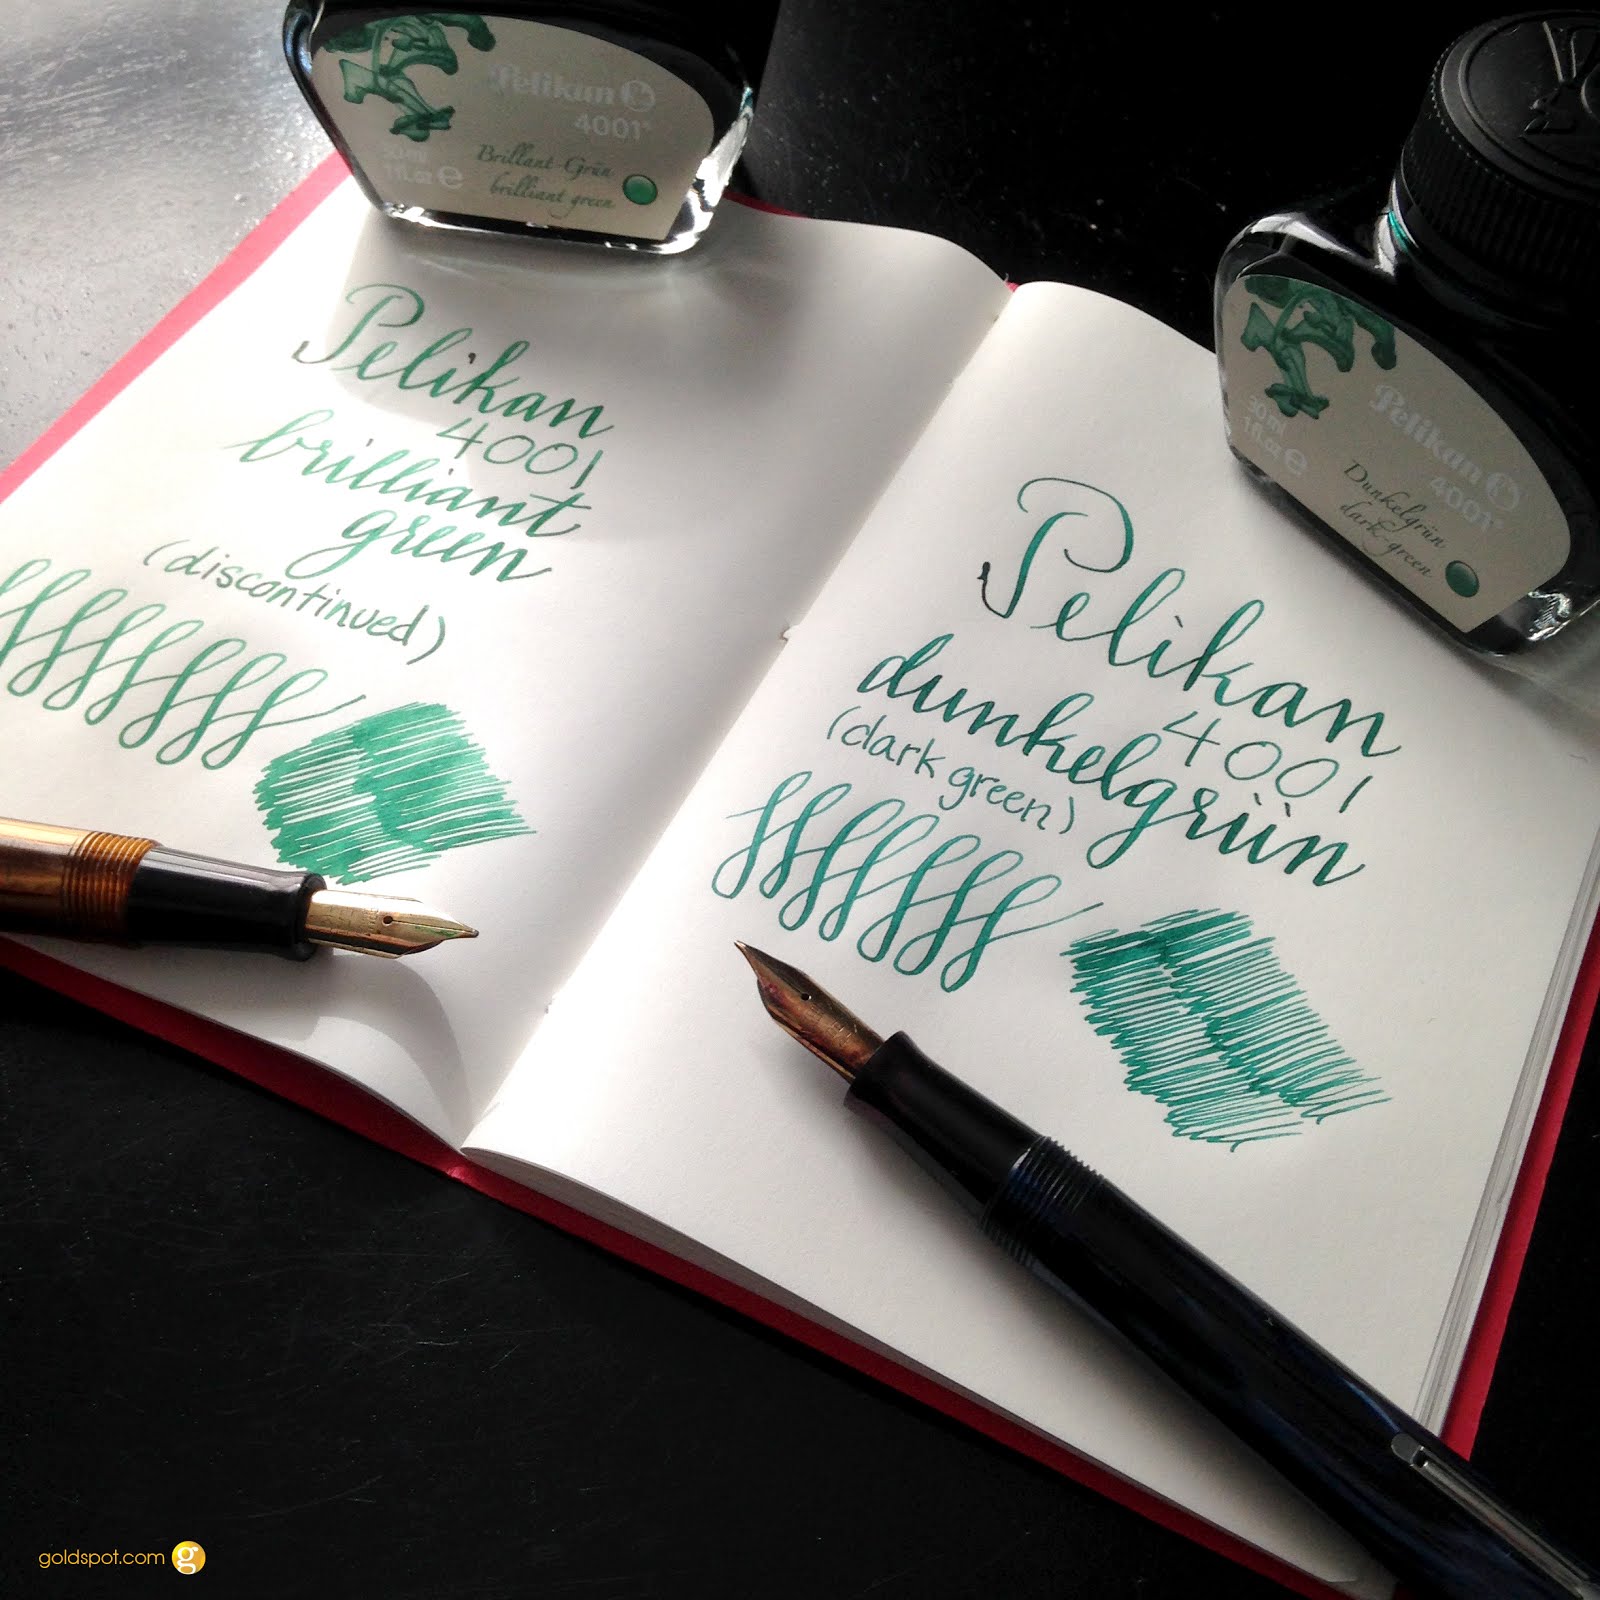 Pelikan
4001®
30ml
1 fl.oz e
Brillant-Grün
brilliant green
Pelikan
4001
brilliant
green
(discontinued)
Pelikan
4001®
30ml
1 fl.oz e
Dunkelgrün
dark-green
Pelikan
4001
dunkelgrün
(dark green)
goldspot.com g